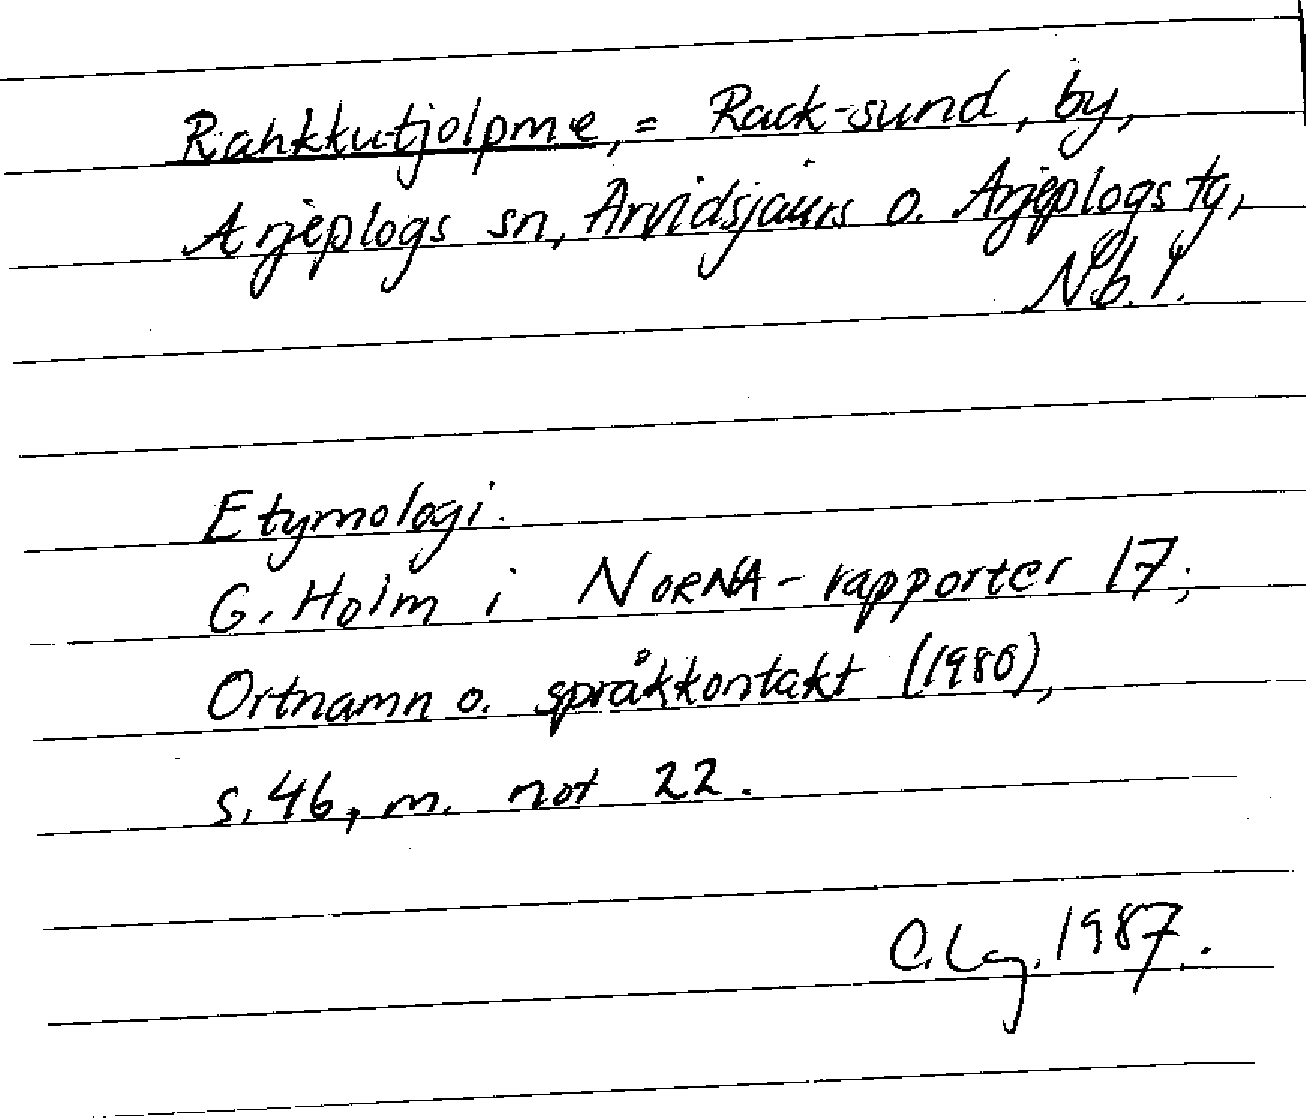 Rahkkutjolpme, = Rack-sund, by,
Arjeplogs sn, Arvidsjaurs o. Arjeplogs tg,
Nb. l.
Etymologi.
G. Holm i NORNA-rapporter 17;
Ortnamn o. språkkontakt (1980),
s. 46, m. not 22.
C. Lag. 1987.